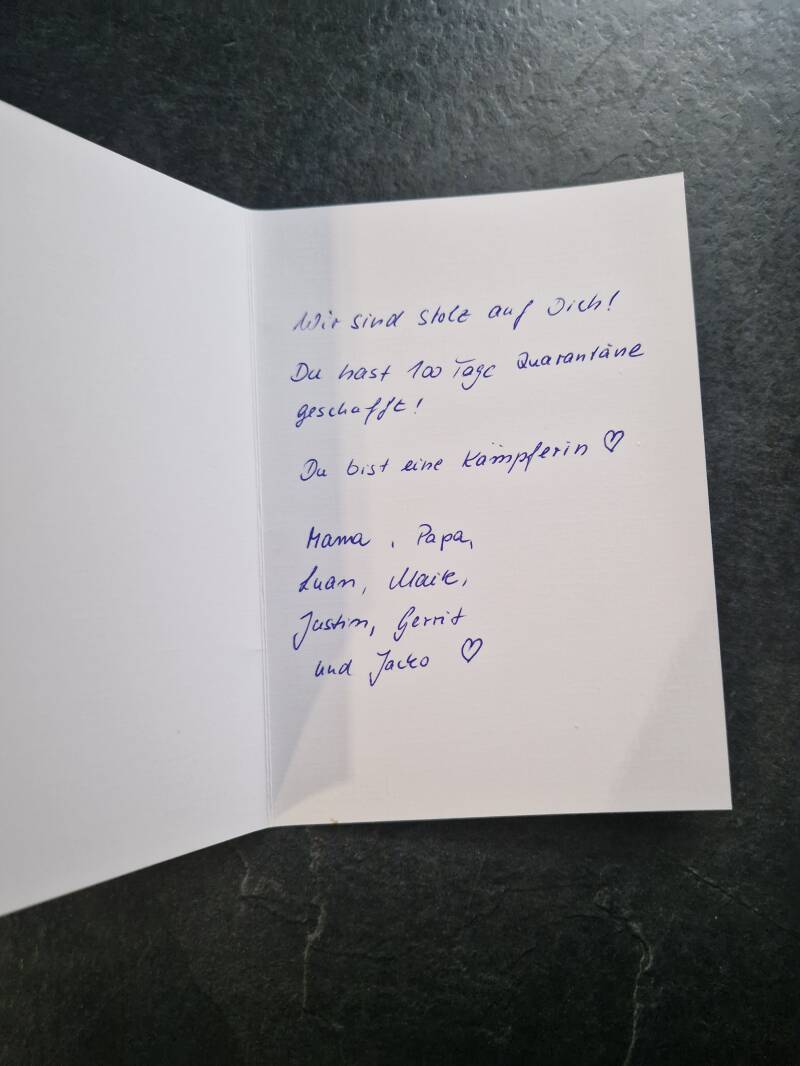 Wir sind stolz auf Dich!
Du hast 100 Tage Quarantäne
geschafft!
Du bist eine Kämpferin ♡
Mama, Papa,
Luan, Maik,
Justin, Gerrit
und Jacko ♡